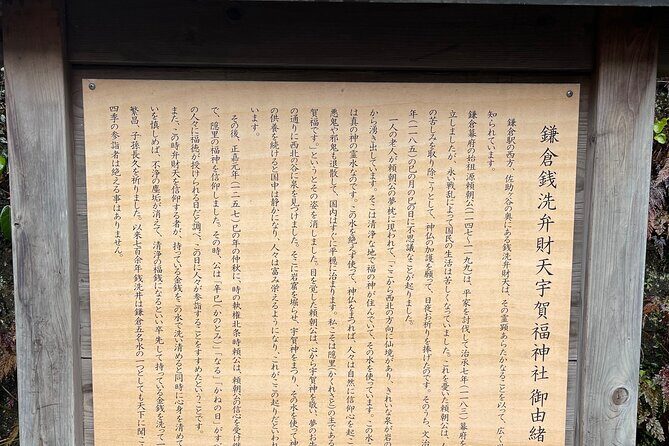 鎌倉銭洗弁財天宇賀福神社御由緒
鎌倉駅の西方、佐助ヶ谷の奥にある銭洗弁財天は、その霊顕あらたかなることを以て、広く
知られています。
鎌倉幕府の始祖源頼朝公(一一四七~一一九九)は、平家を討伐して治承七年(一一八三)幕府を
立しましたが、永い戦乱によって国民の生活は苦しくなっていました。これを憂いた頼朝公は、
の苦しみを取り除こうとして、神仏の加護を願って、日夜お祈りを捧げたのです。そのうち、文治
年(一一八五)の巳の月の巳の日に不思議なことが起りました。
一人の老人が頼朝公の夢枕に現われて、「ここから西北の方向に仙境があり、きれいな泉が岩の
から湧き出しています。そこは清浄な地で福の神が住んでいて、その水を使っています。この水
は真の神の霊水なのです。この水を絶えず使って、神仏をまつれば、人々は自然に信仰心を起こ
悪鬼や邪鬼も退散して、国内はすぐに平穏に治まります。私こそは隠里(かくれざと)の主である
賀福です。」というとその姿を消しました。目を覚した頼朝公は、心から宇賀神を敬い、夢のお
の通りに西北の谷に泉を見つけました。そこに岩窟を堀らせ、宇賀神をまつり、その水を使って神
の供養を続けると国中は静かになり、人々は富み栄えるようになり、これが、この起りだといわれ
います。
その後、正嘉元年(一二五七)巳の年の仲秋に、時の執権北条時頼公は、頼朝公の信心を受け
で、隠里の福神を信仰しました。その時、公は「辛巳(かのとみ)」なる「かねの日」がす
の人々に福徳が授けられる日だと調べ、この日に人々が参詣することをすすめたということです。
また、この時弁財天を信仰する者が、持っている金銭をこの水で洗い清めると同時に心身を清めて
いを慎しめば、不浄の塵垢が消えて、清浄の福銭になるといい卒先して持っている金銭を洗って一
繁昌、子孫長久を祈りました。以来七百余年銭洗井は鎌倉五名水の一つとしても天下に聞こ
四季の参詣者は絶える事はありません。